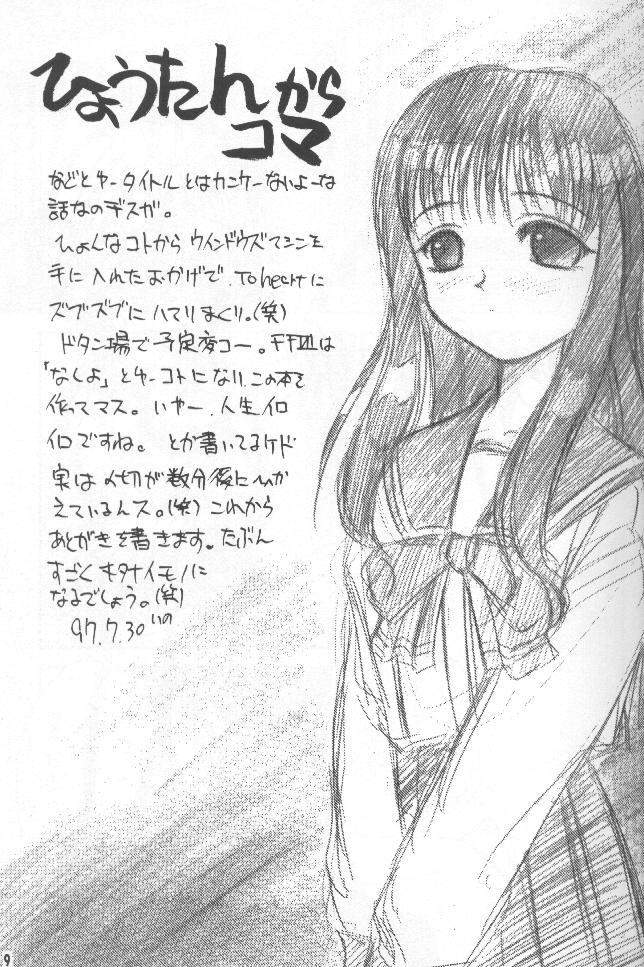 ひょうたんから
コマ
などとゆータイトルとはカンケーないよーな
話なのデスガ。
ひょんなコトからウインドウズマシンを
手に入れたおかげで、To heartに
ズブズブにハマリまくり。(笑)
ドタン場で予定変コー。FFⅦは
「なしよ」とゆーコトになり、この本を
作ってマス。いやー、人生イロ
イロですね。とか書いてるケド
実は〆切が数分後にひか
えているんス。(笑)これから
あとがきを書きます。たぶん
すごくキタナイモノに
なるでしょう。(笑)
97.7.30 いの
9